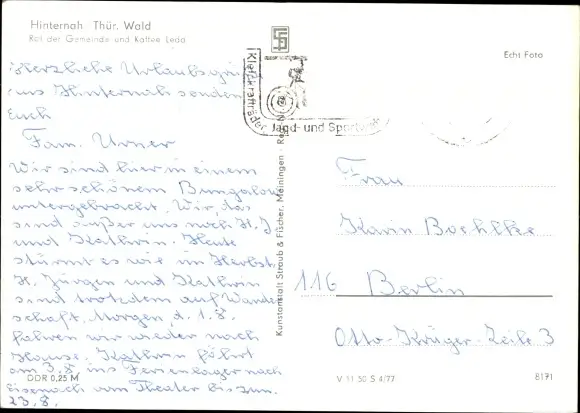 Hinternah Thür. Wald
Rat der Gemeinde und Kaffee Leda
Echt Foto
Herzliche Urlaubsgrüße
aus Hinternah senden
Euch
Fam. Urner
Wir sind hier in einem
sehr schönem Bungalow
untergebracht. Wir, das
sind außer uns noch H. J.
und Kathrin. Heute
stürmt es wie im Herbst.
H. Jürgen und Kathrin
sind trotzdem auf Wander
schaft. Morgen, d. 1.8.
fahren wir wieder nach
Hause. Kathrin fährt
am 3.8. ins Ferienlager nach
Eisenach vom Theater bis zum
23.8.
DDR 0,25 M
Kleinkrafträder
Jagd- und Sportwaffen
Kunstanstalt Straub & Fischer, Meiningen
Frau
Karin Boehlke
116 Berlin
Otto-Krüger-Zeile 3
V 11 50 S 4/77
8171